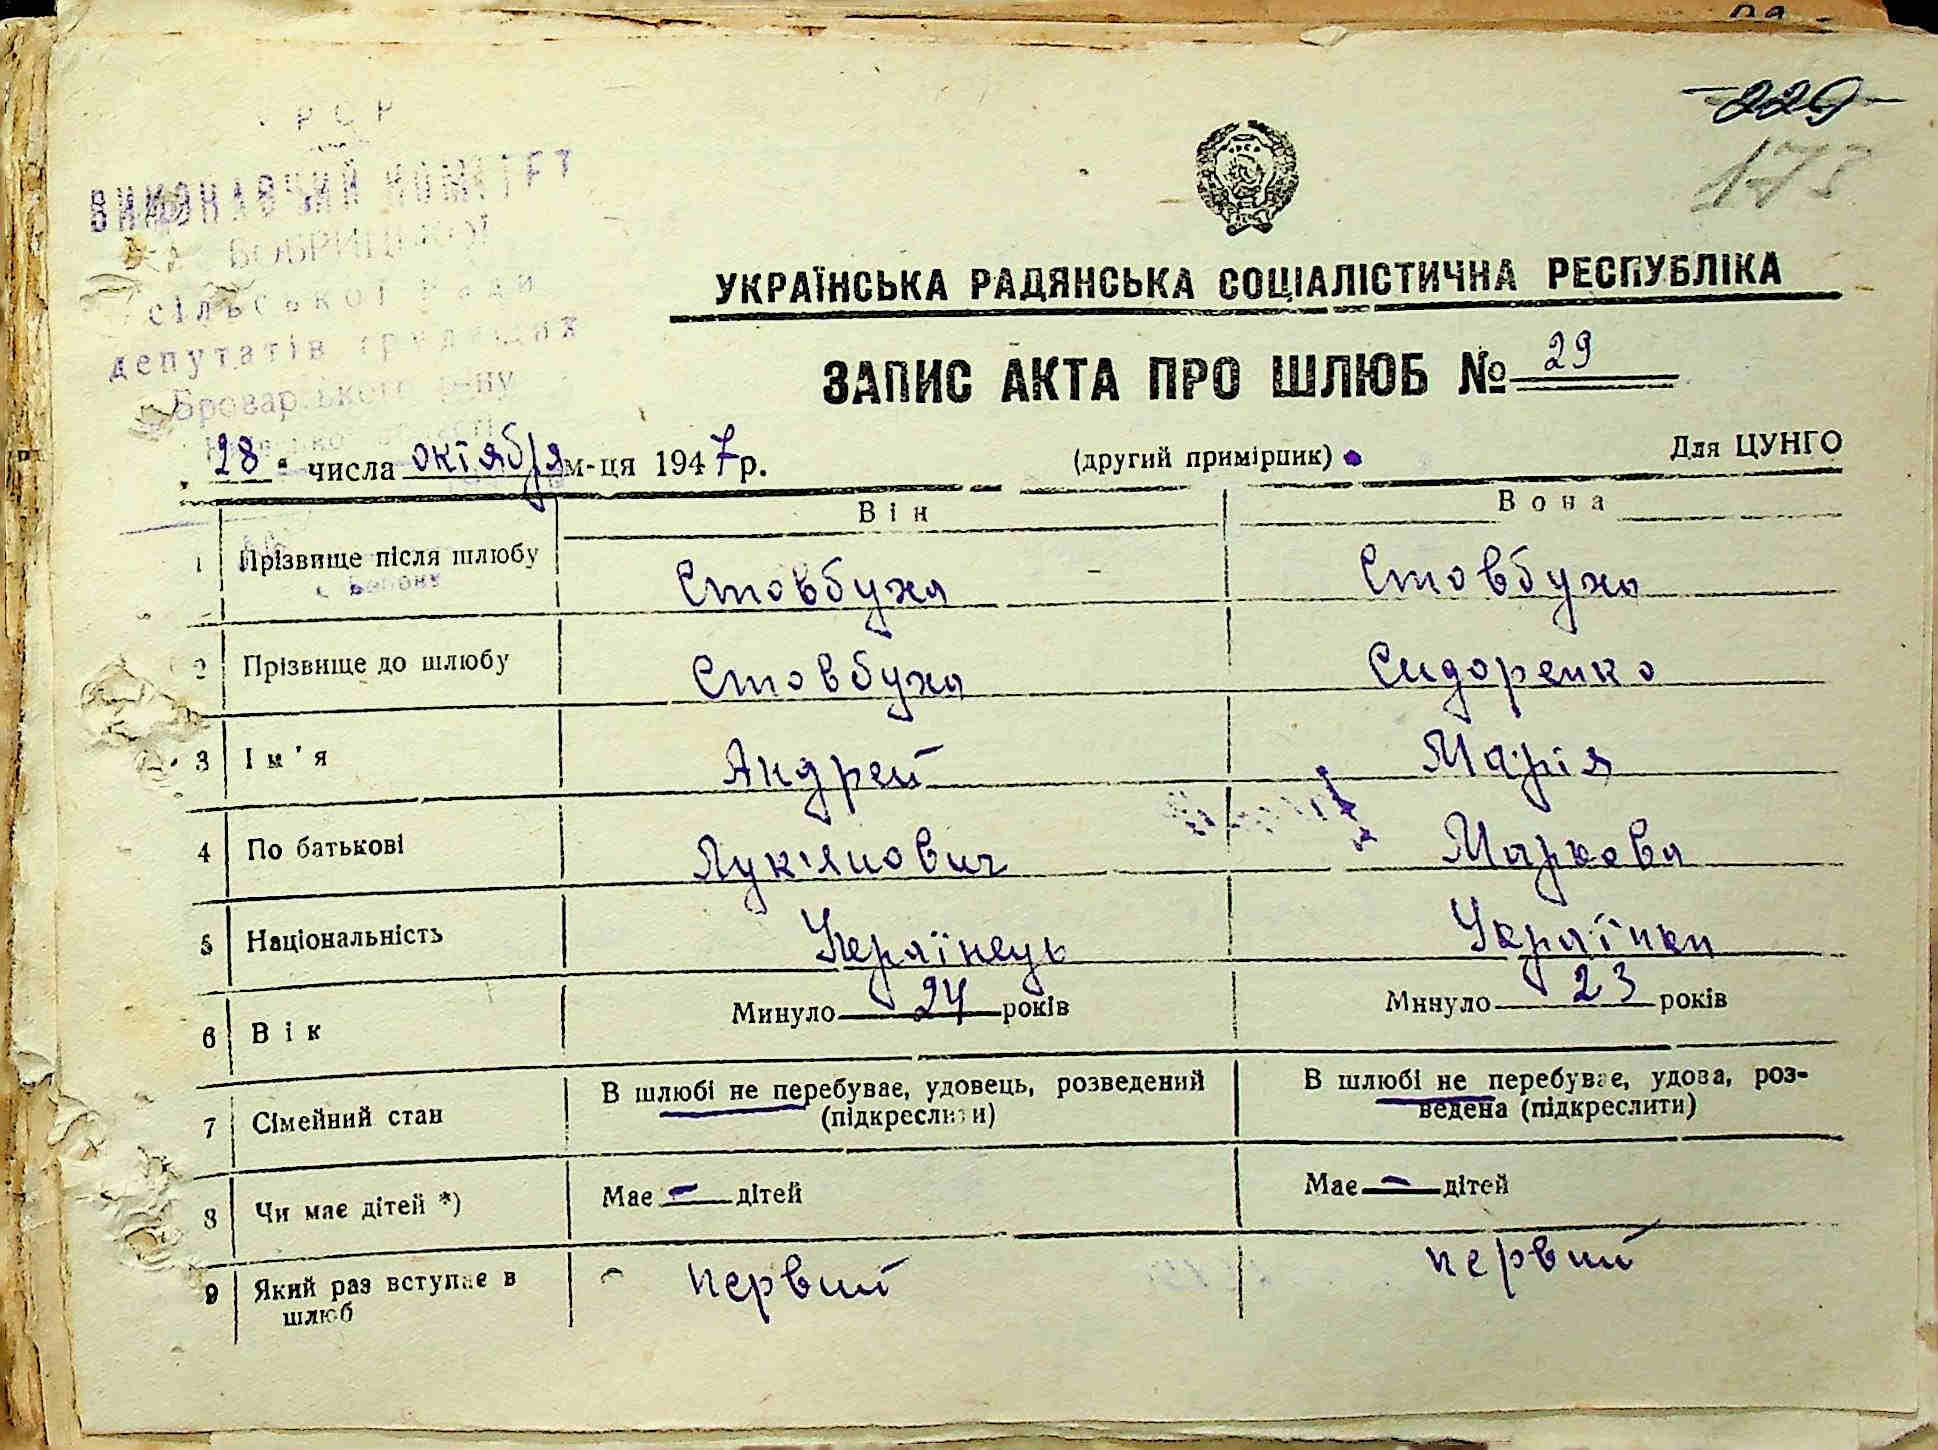 229
173
Р С Р
ВИКОНАВЧИЙ КОМІТЕТ
БОБРИЦЬКОЇ
сільської Ради
депутатів трудящих
Броварського р-ну
УКРАЇНСЬКА РАДЯНСЬКА СОЦІАЛІСТИЧНА РЕСПУБЛІКА
ЗАПИС АКТА ПРО ШЛЮБ № 29
28 числа октября м-ця 1947 р. (другий примірник) Для ЦУНГО
Він Вона
1 Прізвище після шлюбу Стовбуха Стовбуха
2 Прізвище до шлюбу Стовбуха Сидоренко
3 Ім'я Андрей Марія
4 По батькові Лук'янович Маркова
5 Національність Українець Українка
6 Вік Минуло 24 років Минуло 23 років
7 Сімейний стан В шлюбі не перебуває, удовець, розведений (підкреслити) В шлюбі не перебуває, удова, роз-
ведена (підкреслити)
8 Чи має дітей *) Має - дітей Має - дітей
9 Який раз вступає в первий первий
шлюб